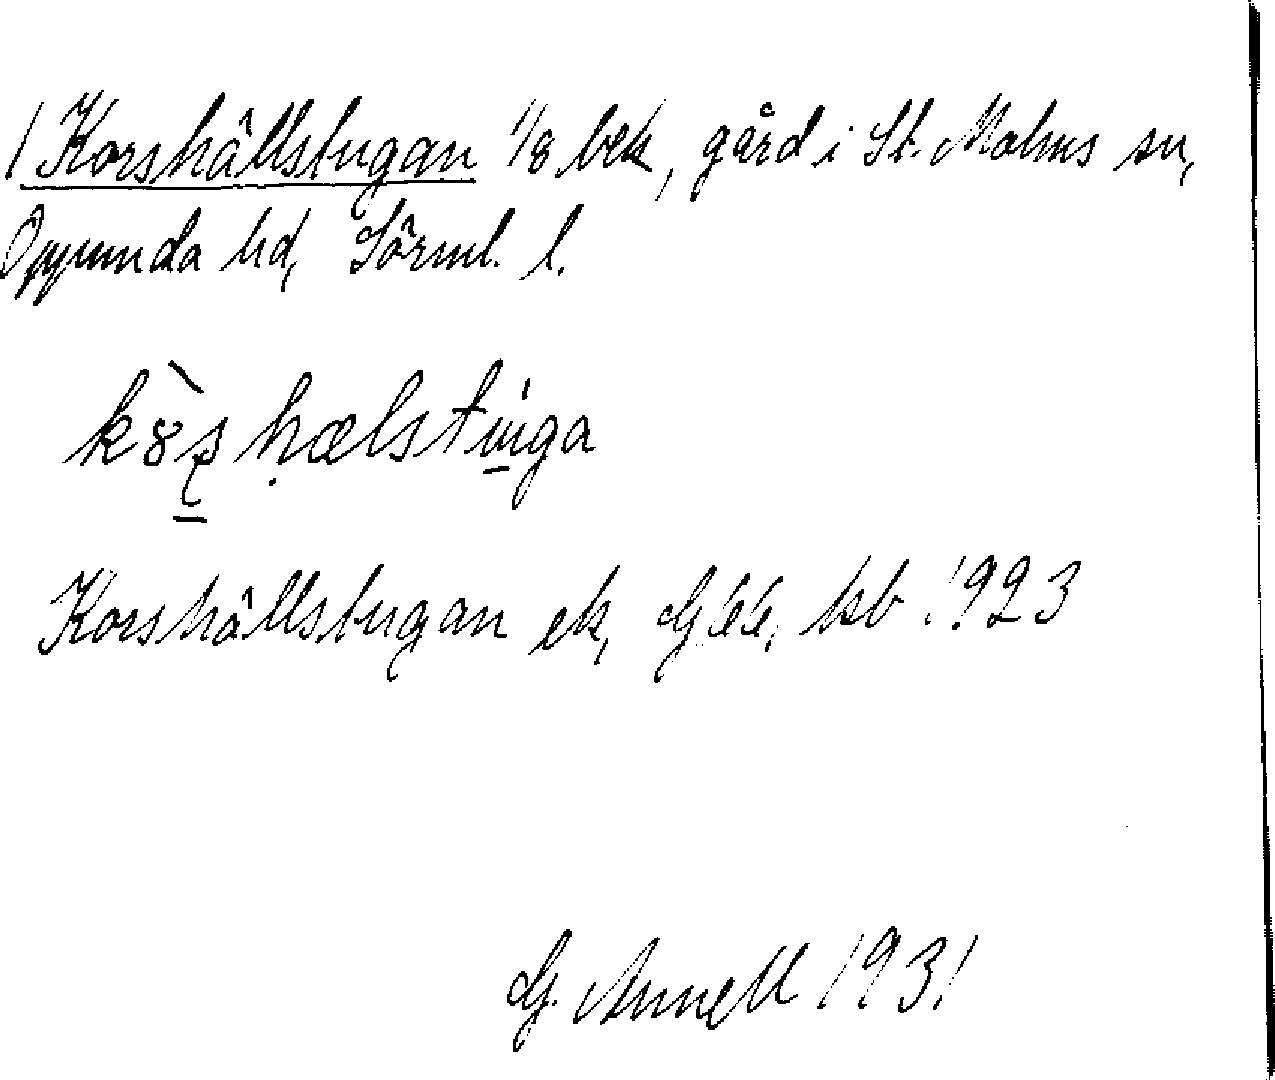 / Korshällstugan 1/8 bek, gård i St. Malms sn,
Oppunda hd, Sörml. l.
Korshällstugan ek, G66, kb 1923
G. Annell 1931